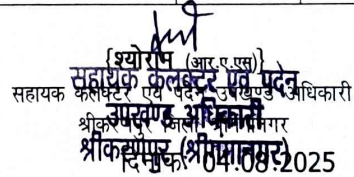 {श्योराम (आर.ए.एस)}
सहायक कलक्टर एवं पदेन
सहायक कलक्टर एवं पदेन उपखण्ड अधिकारी
उपखण्ड अधिकारी
श्रीकरणपुर जिला श्रीगंगानगर
श्रीकरणपुर (श्रीगंगानगर)
दिनांक: 04.08.2025